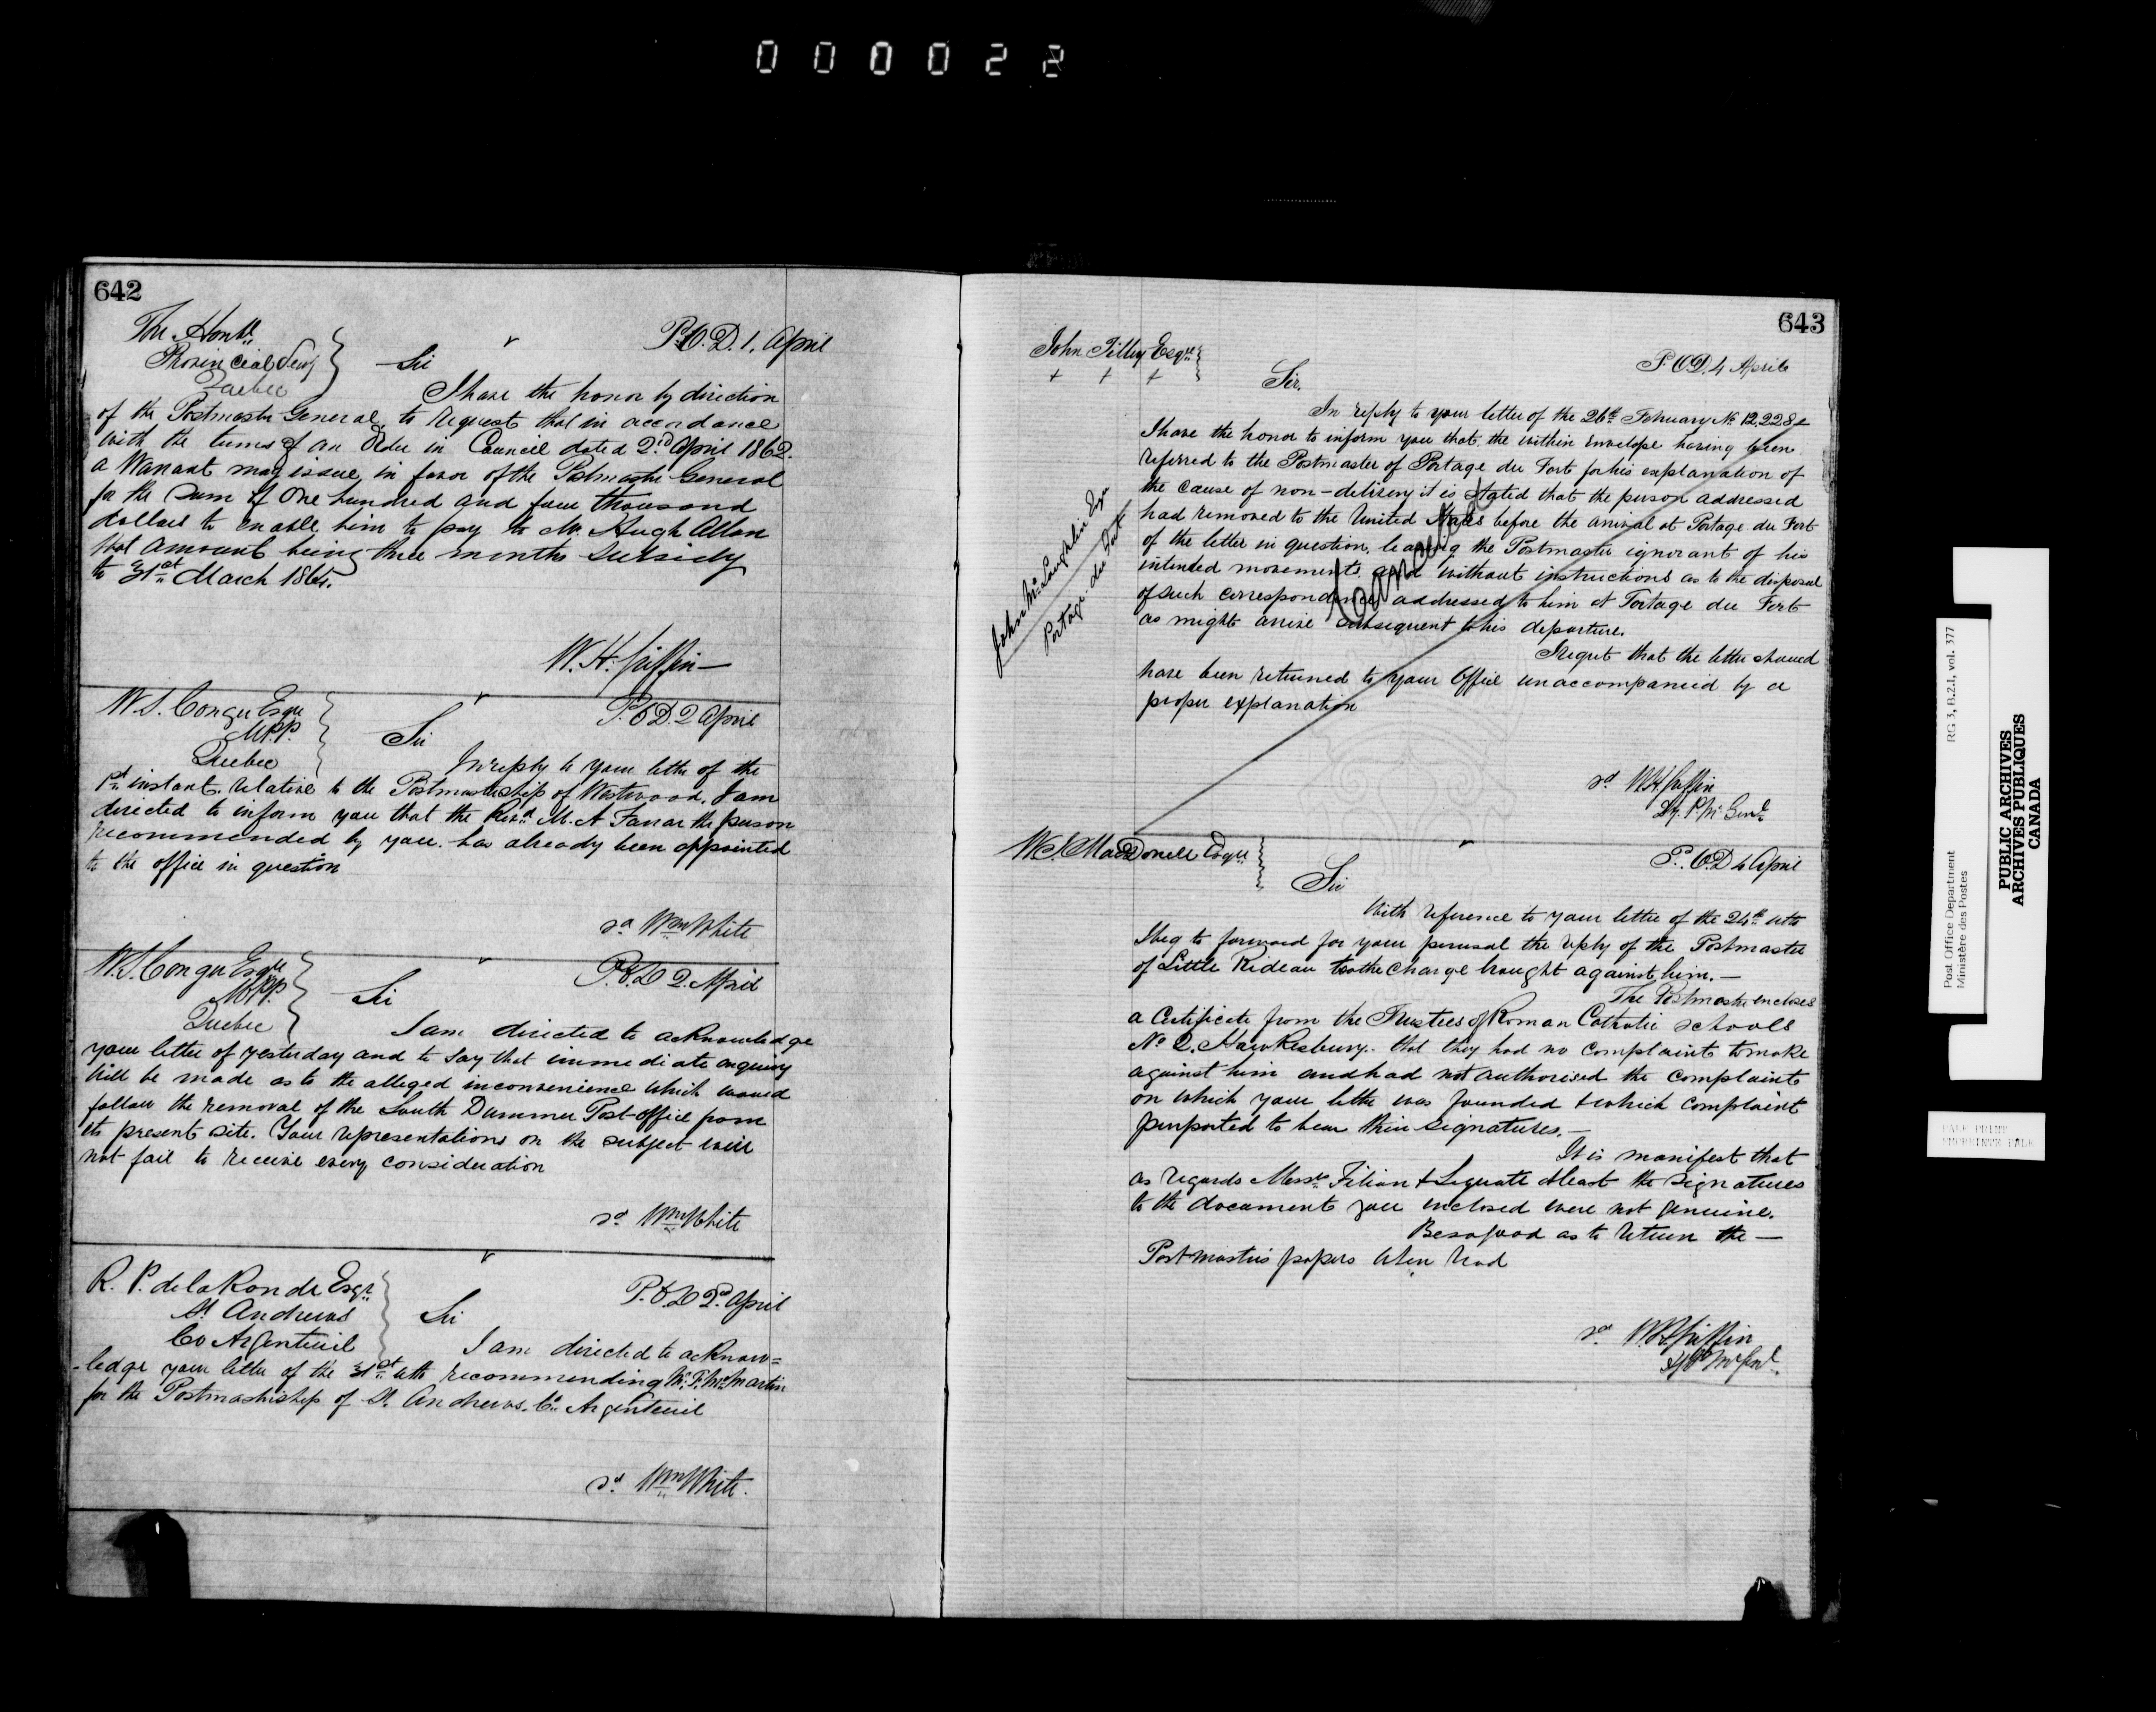 000022
642
The Honble
Provincial Secy
Quebec
P.O.D. 1. April
Sir
I have the honor by direction
of the Postmaster General, to request that in accordance
with the terms of an Order in Council dated 2nd April 1862.
a Warrant may issue in favor of the Postmaster General
for the Sum of One hundred and four thousand
dollars to enable him to pay to Mr. Hugh Allan
that amount being three months Subsidy
to 31st March 1865.
W. H. Griffin
W. S. Conger Esqre
M.P.P.
Quebec
P.O.D. 2 April
Sir
In reply to your letter of the
1st instant. relative to the Postmastership of Westwood. I am
directed to inform you that the Revd. M. A Farrar the person
recommended by you. has already been appointed
to the office in question
sd Wm White
W. S. Conger Esqre
M.P.P.
Quebec
P.O.D 2. April
Sir
I am directed to acknowledge
your letter of yesterday and to say that immediate enquiry
will be made as to the alleged inconvenience which would
follow the removal of the South Dummer Post-office from
its present site. Your representations on the subject will
not fail to receive every consideration
sd Wm White
R. P. de la Ronde Esqr.
St Andrews
Co Argenteuil
P.O.D 2nd April
Sir
I am directed to acknow=
-ledge your letter of the 31st ulto recommending Mr. F. McMartin
for the Postmastership of St. Andrews. Co. Argenteuil
sd Wm White.
643
John Tilley Esqre
+ + +
P.O.D. 4 April
Sir.
In reply to your letter of the 26th February No. 12,228
I have the honor to inform you that the within Envelope having been
referred to the Postmaster of Portage du Fort for his explanation of
the cause of non-delivery it is stated that the person addressed
had removed to the United States before the arrival at Portage du Fort
of the letter in question, leaving the Postmaster ignorant of his
intended movements and without instructions as to the disposal
of such correspondence addressed to him at Portage du Fort
as might arrive subsequent to his departure.
I regret that the letter should
have been returned to your Office unaccompanied by a
proper explanation
John McLaughlin Esqr
Portage-du Fort
Cancelled
sd W H Griffin
Dy. P. M. Genl.
W. S. MacDonell Esqre
P.O.D 4 April
Sir
With reference to your letter of the 24th ulto
I beg to forward for your perusal the reply of the Postmaster
of Little Rideau to the charge brought against him. —
The Postmaster encloses
a Certificate from the Trustees of Roman Catholic Schools
No 2. Hawkesbury.. that they had no complaint to make
against him and had not authorised the complaint
on which your letter was founded & which complaint
purported to bear their signatures. —
It is manifest that
as regards Messrs Filion & at least the signatures
to the document you enclosed were not genuine.
Be so good as to return the —
Postmaster's papers when read
sd W H Griffin
Dy P M Genl.
Post Office Department
Ministère des Postes
RG 3, B.2.1, vol. 377
PUBLIC ARCHIVES
ARCHIVES PUBLIQUES
CANADA
PALE PRINT